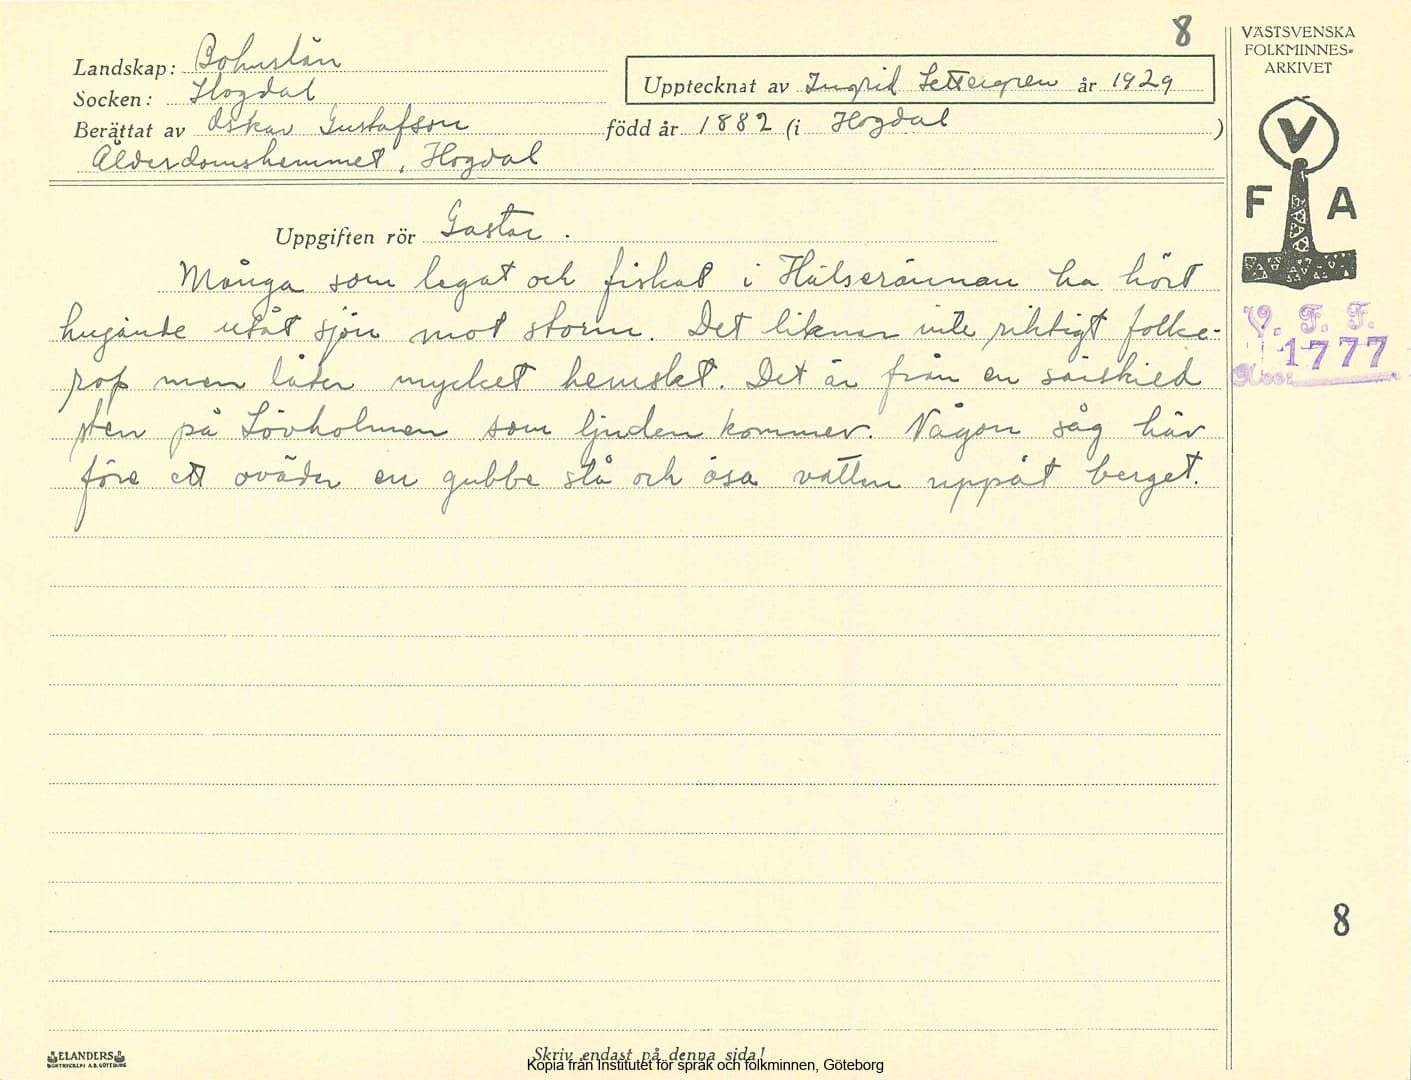 8
VÄSTSVENSKA
FOLKMINNES-
ARKIVET
Landskap: Bohuslän
Socken: Hogdal
Upptecknat av Ingrid Settergren år 1929
Berättat av Oskar Gustafson född år 1882 (i Hogdal)
Ålderdomshemmet, Hogdal
V
F A
Uppgiften rör Gastar.
Många som legat och fiskat i Hälserännan ha hört
hugande utåt sjön mot storm. Det liknar inte riktigt folke-
rop men låter mycket hemskt. Det är från en särskild
sten på Lövholmen som ljuden kommer. Någon såg här
före ett oväder en gubbe stå och ösa vatten uppåt berget.
V. F. F.
1777
8
ELANDERS
BOKTRYCKERI A.B. GÖTEBORG
Skriv endast på denna sida!
Kopia från Institutet för språk och folkminnen, Göteborg